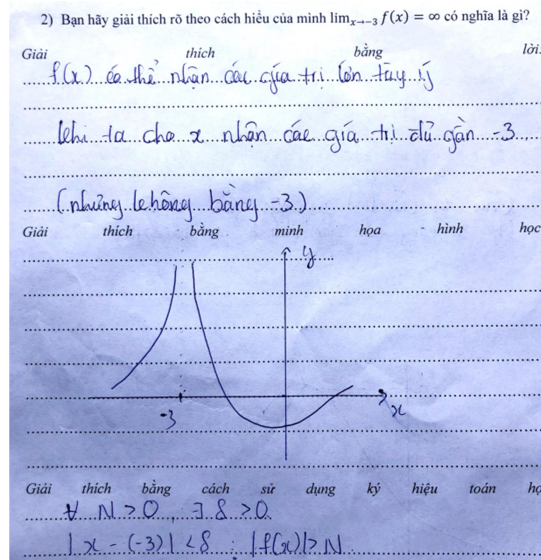 2) Bạn hãy giải thích rõ theo cách hiểu của mình lim_{x→-3} f(x) = ∞ có nghĩa là gì?
Giải thích bằng lời.
f(x) có thể nhận các gía trị lớn tùy ý
khi ta cho x nhận các gía trị đủ gần -3
(nhưng không bằng -3)
Giải thích bằng minh họa hình học
y
-3
x
Giải thích bằng cách sử dụng ký hiệu toán
∀ N > 0, ∃ δ > 0
|x - (-3)| < δ : |f(x)| > N